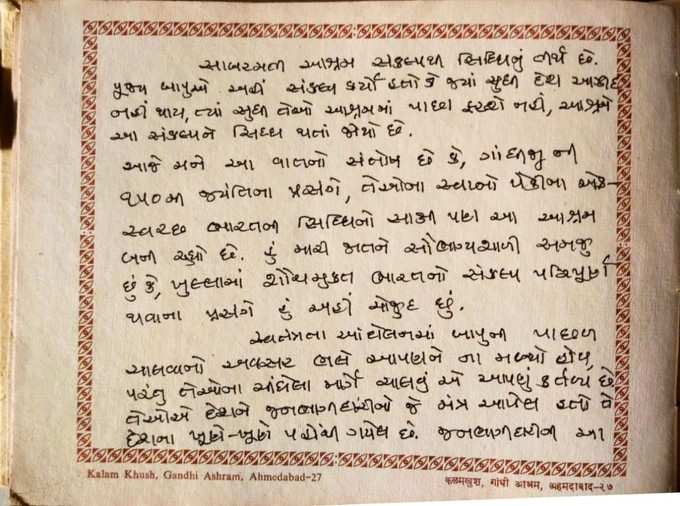 સાબરમતી આશ્રમ સંકલ્પથી સિદ્ધિનું તીર્થ છે.
પૂજ્ય બાપુએ અહીં સંકલ્પ કર્યો હતો કે જ્યાં સુધી દેશ આઝાદ
નહીં થાય, ત્યાં સુધી તેઓ આશ્રમમાં પાછા ફરશે નહીં, આશ્રમે
આ સંકલ્પને સિદ્ધ થતાં જોયો છે.
આજે મને આ વાતનો સંતોષ છે કે, ગાંધીજી ની
૧૫૦મી જયંતિના પ્રસંગે, તેઓના સ્વપ્નો પૈકીના એક-
સ્વચ્છ ભારતની સિદ્ધિનો સાક્ષી પણ આ આશ્રમ
બની રહ્યો છે. હું મારી જાતને સૌભાગ્યશાળી સમજુ
છું કે, ખુલ્લામાં શૌચમુક્ત ભારતનો સંકલ્પ પરિપૂર્ણ
થવાના પ્રસંગે હું અહીં મોજુદ છું.
સ્વતંત્રતા આંદોલનમાં બાપુની પાછળ
ચાલવાનો અવસર ભલે આપણને ના મળ્યો હોય,
પરંતુ તેઓના ચીંધેલા માર્ગે ચાલવું એ આપણું કર્તવ્ય છે
તેઓએ દેશને જનભાગીદારીનો જે મંત્ર આપેલ હતો તે
દેશના ખૂણે-ખૂણે પહોંચી ગયેલ છે. જનભાગીદારીની આ
Kalam Khush, Gandhi Ashram, Ahmedabad-27
कलमखुश, गांधी आश्रम, अहमदाबाद-२७